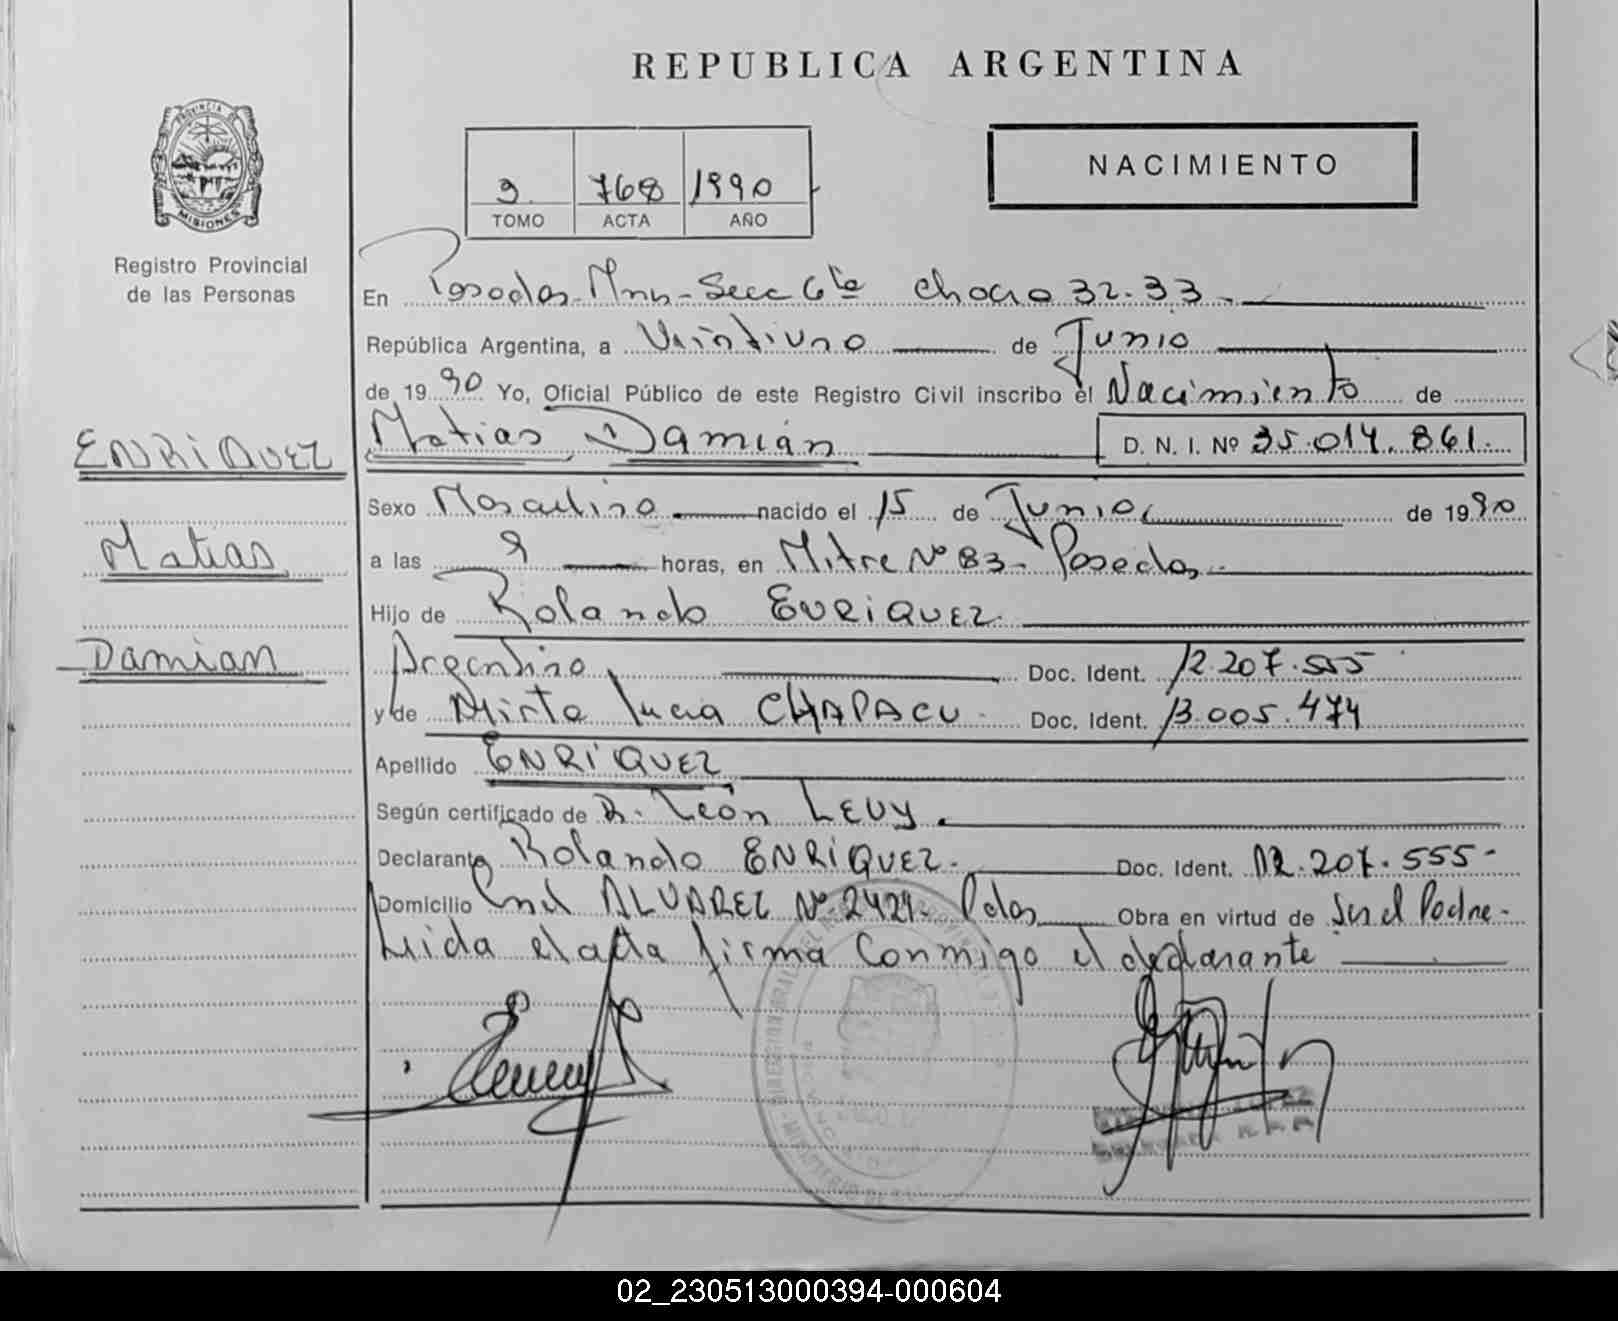 REPUBLICA ARGENTINA
PROVINCIA DE
MISIONES
Registro Provincial
de las Personas
3 768 1990
TOMO ACTA AÑO
NACIMIENTO
En Posadas - Mnes - Secc 6ta Chacra 32-33
República Argentina, a Veintiuno de Junio
de 1990 Yo, Oficial Público de este Registro Civil inscribo el Nacimiento de
Matias Damián D. N. I. Nº 35.014.861.
ENRiQUEZ
Matias
Damian
Sexo Masculino nacido el 15 de Junio de 1990
a las 9 horas, en Mitre Nº 83 - Posadas
Hijo de Rolando ENRiQUEZ
Argentino Doc. Ident. 12.207.555
y de Mirta Lucia CHAPACU Doc. Ident. 13.005.474
Apellido ENRiQUEZ
Según certificado de León LEVY.
Declarante Rolando ENRiQUEZ. Doc. Ident. 12.207.555-
Domicilio Cnel ALVAREZ Nº 2421- Pdas Obra en virtud de Ser el Padre -
Leida el acta firma conmigo el declarante
02_230513000394-000604